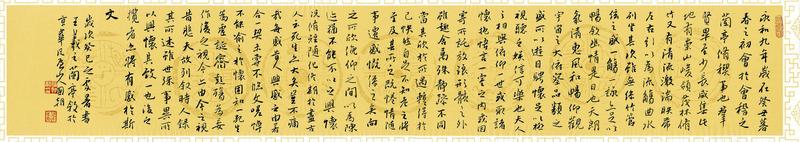 永和九年歲在癸丑暮
春之初會於會稽之
蘭亭脩禊事也羣
賢畢至少長咸集此
地有崇山峻領茂林脩
竹又有清流激湍暎帶
左右引以為流觴曲水
列坐其次雖無絲竹管
弦之盛一觴一詠亦足以
暢敘幽情是日也天朗
氣清惠風和暢仰觀
宇宙之大俯察品類之
盛所以遊目騁懷足以極
視聽之娛信可樂也夫人
之相與俯仰一世或取諸
懷抱悟言一室之內或因
寄所託放浪形骸之外
雖趣舍萬殊靜躁不同
當其欣於所遇暫得於
己快然自足不知老之將
至及其所之既惓情隨
事遷感慨係之矣向
之所欣俛仰之間以為陳
迹猶不能不以之興懷
況脩短隨化終期於盡古
人云死生亦大矣豈不痛
哉每攬昔人興感之由若
合一契未嘗不臨文嗟悼
不能喻之於懷固知一死生
為虛誕齊彭殤為妄
作後之視今亦由今之視
昔悲夫故列敘時人錄
其所述雖世殊事異所
以興懷其致一也後之
攬者亦將有感於斯
文
歲次癸巳之夏書
王羲之蘭亭敘於
京華山人國朝